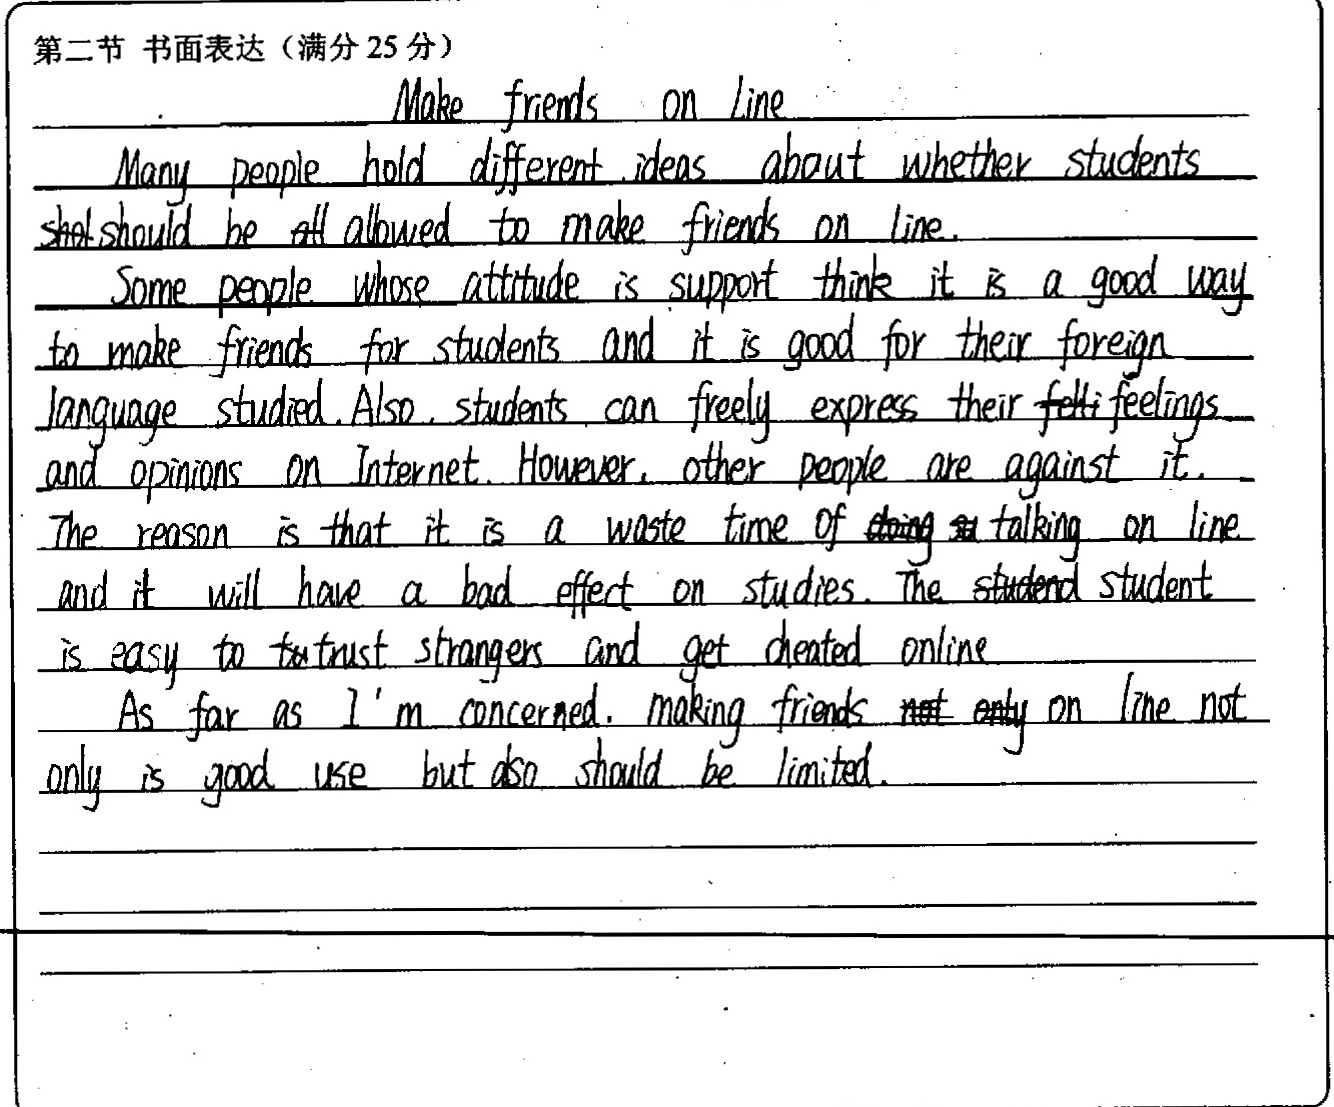 第二节 书面表达（满分 25 分）
Make friends on Line
Many people hold different ideas about whether students
should be allowed to make friends on line.
Some people whose attitude is support think it is a good way
to make friends for students and it is good for their foreign
language studied. Also, students can freely express their feelings
and opinions on Internet. However, other people are against it.
The reason is that it is a waste time of talking on line
and it will have a bad effect on studies. The student
is easy to trust strangers and get cheated online
As far as I'm concerned, making friends on line not
only is good use but also should be limited.